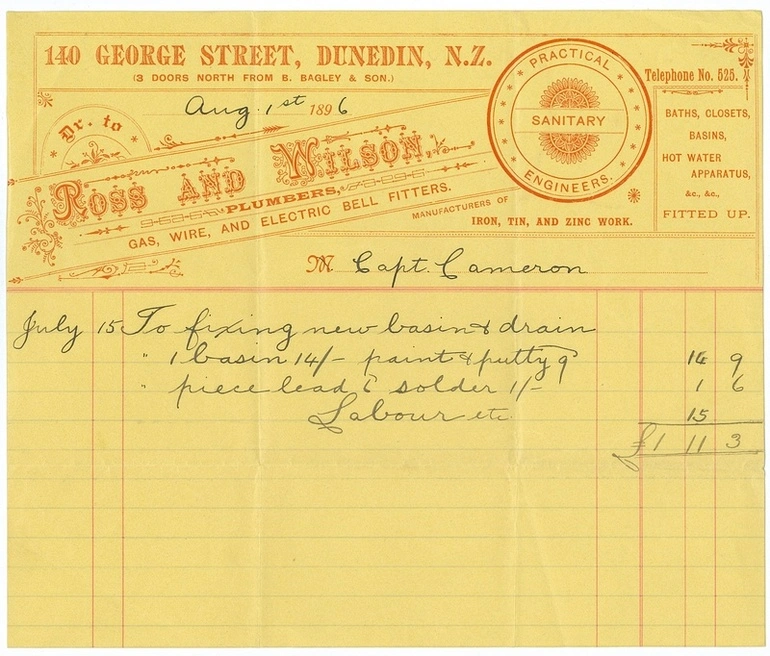 140 GEORGE STREET, DUNEDIN, N.Z.
(3 DOORS NORTH FROM B. BAGLEY & SON.)
Telephone No. 525.
PRACTICAL
SANITARY
ENGINEERS.
Aug. 1st 1896
Dr. to
ROSS AND WILSON,
PLUMBERS,
GAS, WIRE, AND ELECTRIC BELL FITTERS.
MANUFACTURERS OF
IRON, TIN, AND ZINC WORK.
BATHS, CLOSETS,
BASINS,
HOT WATER
APPARATUS,
&c., &c.,
FITTED UP.
M Capt. Cameron
July 15 To fixing new basin & drain
" 1 basin 14/- paint & putty 9 14 9
" piece lead 6 solder 1/- 1 6
Labour etc 15
£1 11 3